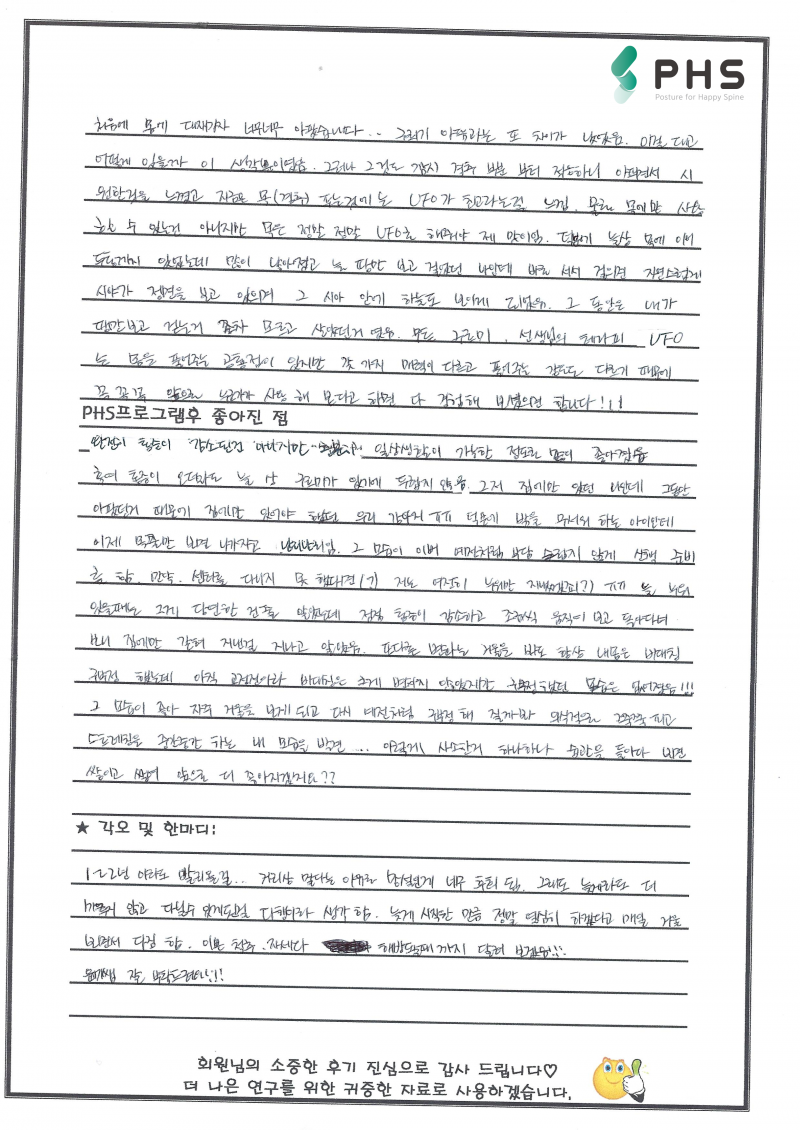 PHS
Posture for Happy Spine
처음에 몸에 대자마자 너무너무 아팠습니다.. 그러기 아픔과는 또 차이가 났었음. 이걸 대고
어떻게 있을까 이 생각뿐이었음. 그러나 그것도 잠시 경추 부분 부터 적응하니 아프면서 시
원한걸 느꼈고 지금은 목(경추) 푸는것에는 UFO가 최고라는걸 느낌. 물론 목에만 사용
할 수 있는건 아니지만 목은 정말 정말 UFO로 해줘야 제 맛이임. 덕분에 늘상 목에 이어
두통까지 있었는데 많이 나아졌고 늘 땅만 보고 걸었던 나인데 바로 서서 걸으면 자연스럽게
시야가 정면을 보고 있으며 그 시야 안에 하늘도 보이게 되었음. 그 동안은 내가
땅만보고 걷는거 조차 모르고 살았던거 였음. 무튼 구르미, 선생님의 테라피 UFO
는 몸을 풀어주는 공통점이 있지만 각 가지 매력이 다르고 풀어주는 강도도 다르기 때문에
꼭 꼭꼭 앞으로 누군가가 사용 해 본다고 하면 다 경험해 보셨으면 합니다!!!
PHS프로그램후 좋아진 점
완전히 통증이 감소된건 아니지만 일상생활이 가능한 정도로 많이 좋아졌음
혹여 통증이 오더라도 늘 상 구르미가 있기에 두렵지 않음. 그저 집에만 있던 나인데 그동안
아팠던거 때문에 집에만 있어야 했던 우리 강아지 덕분에 밖을 무서워 하는 아이인데
이제 목줄만 보면 나가자고 난리난리임. 그 모습이 이번 예전처럼 부담 스럽지 않게 산책 준비
를 함. 만약 센터를 다니지 못 했다면(?) 저는 여전히 누워만 지냈겠죠(?) ㅠㅠ 늘 누워
있을때는 그게 당연한 건줄 알았는데 점점 통증이 감소하고 조금씩 움직여 보고 돌아다녀
보니 집에만 갇혀 지낸걸 지나고 알았음. 또다른 변화는 거울을 봐도 항상 내몸은 비대칭
구부정 했는데 아직 교정전이라 비대칭은 크게 변하지 않았지만 구부정했던 모습은 없어졌음!!!
그 모습이 좋아 자주 거울을 보게 되고 다시 예전처럼 구부정 해 질까봐 의식적으로 쭉쭉 피고
스트레칭을 중간중간 하는 내 모습을 발견.... 이렇게 사소한거 하나하나 습관을 들이다 보면
쌓이고 쌓여 앞으로 더 좋아지겠지요??
★ 각오 및 한마디:
1~2년 아까도 빨리올걸... 거리상 멀다는 이유로 망설인게 너무 후회 됨. 그래도 늦게라도 더
미루지 않고 다닐수 있게도된걸 다행이라 생각 함. 늦게 시작한 만큼 정말 열심히 하겠다고 매일 거울
보면서 다짐 함. 이쁜 척추, 자세다 해방될때 까지 달려 보겠음!!!
잘 부탁드려요!!!
회원님의 소중한 후기 진심으로 감사 드립니다♡
더 나은 연구를 위한 귀중한 자료로 사용하겠습니다.